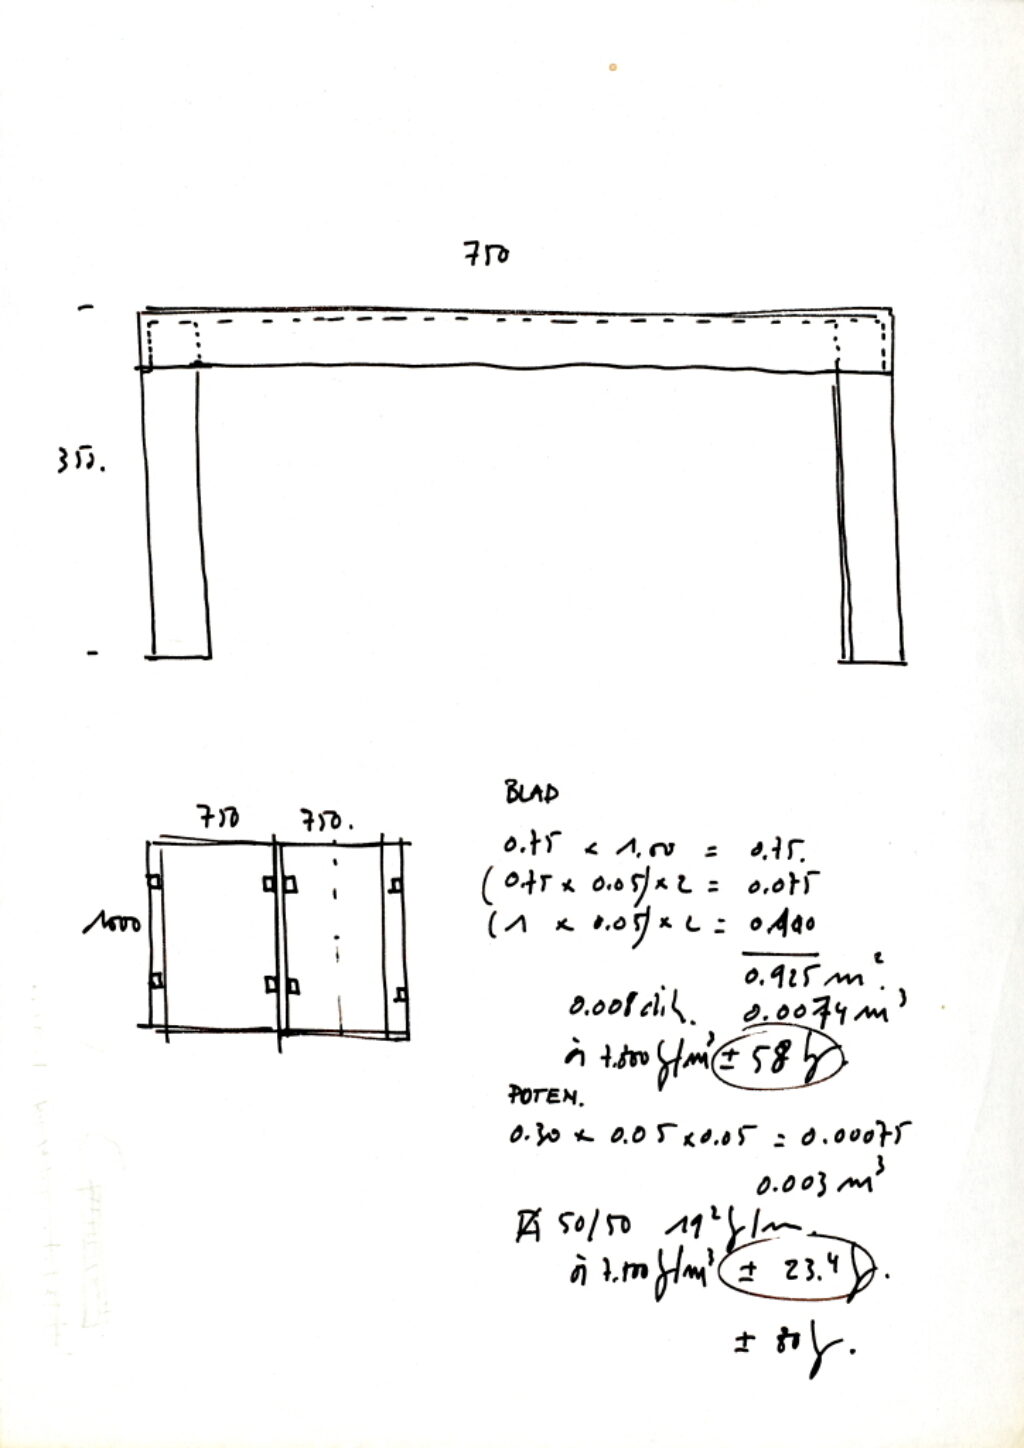 750
350.
750 750.
1000
BLAD
0.75 x 1.00 = 0.75.
(0.75 x 0.05) x 2 = 0.075
(1 x 0.05) x 2 = 0.100
0.925 m².
0.008 dik. 0.0074 m³
à 7.800 kg/m³ ± 58 kg.
POTEN.
0.30 x 0.05 x 0.05 = 0.00075
0.003 m³
50/50 19² kg/m.
à 7.800 kg/m³ ± 23.4 kg.
± 80 kg.